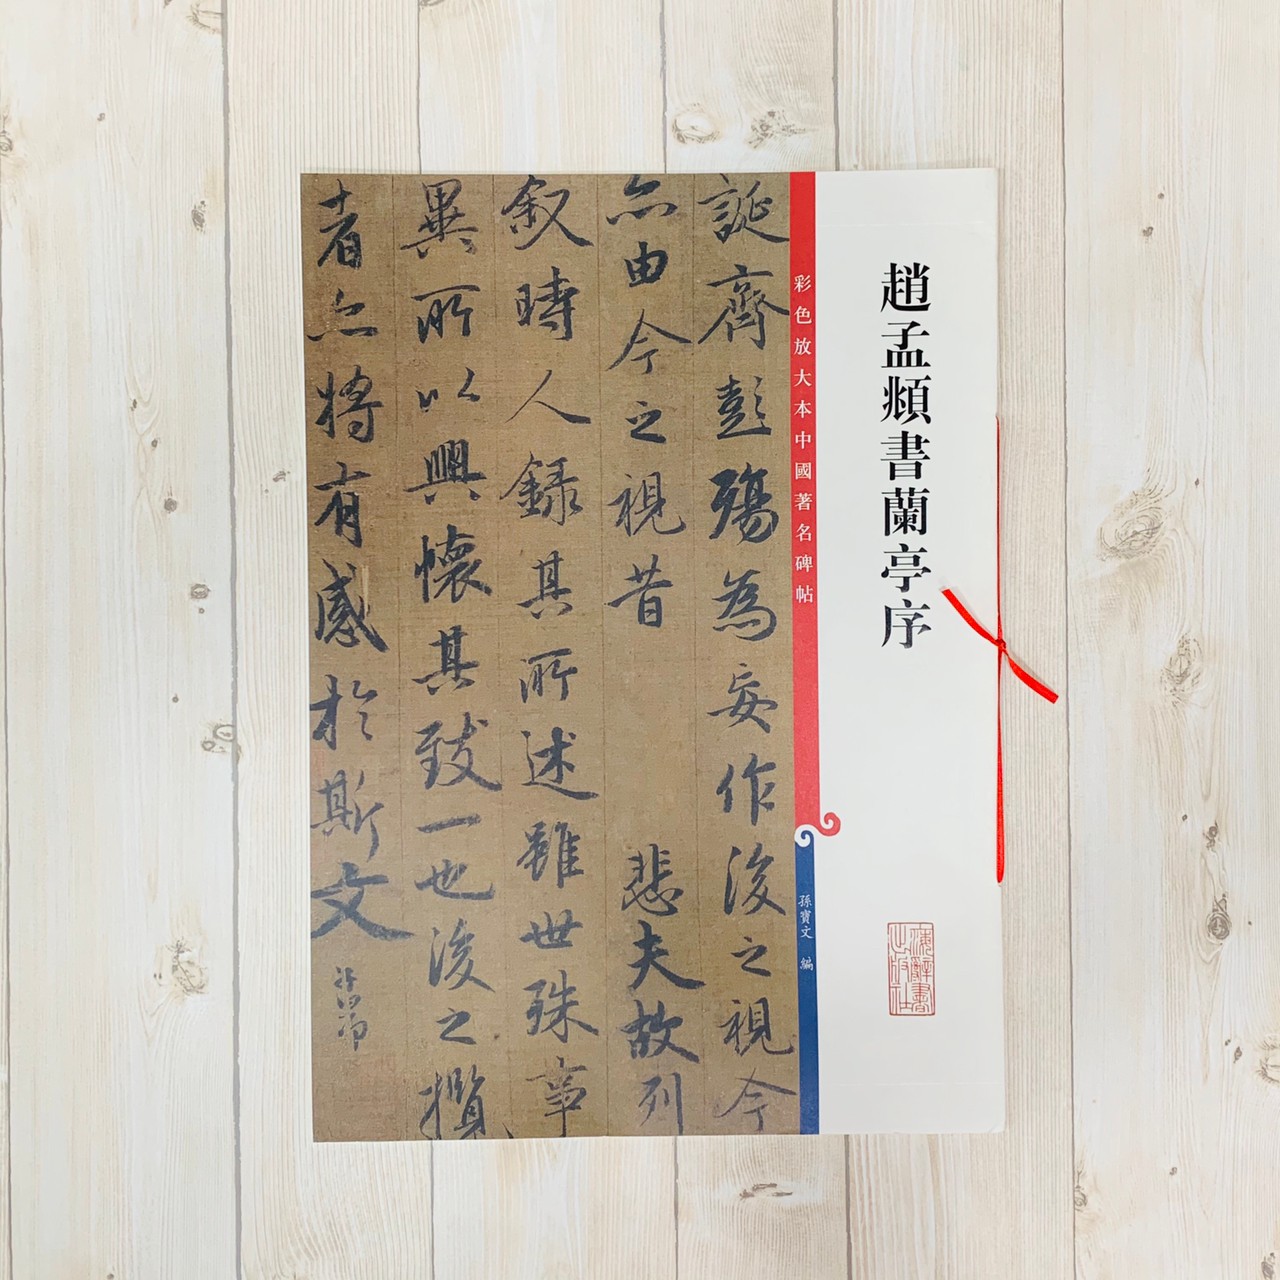 趙孟頫書蘭亭序
上海辭書
出版社
彩色放大本中國著名碑帖
孫寶文 編
誕齊彭殤為妄作後之視今
亦由今之視昔 悲夫故列
叙時人錄其所述雖世殊事
異所以興懷其致一也後之攬
者亦將有感於斯文